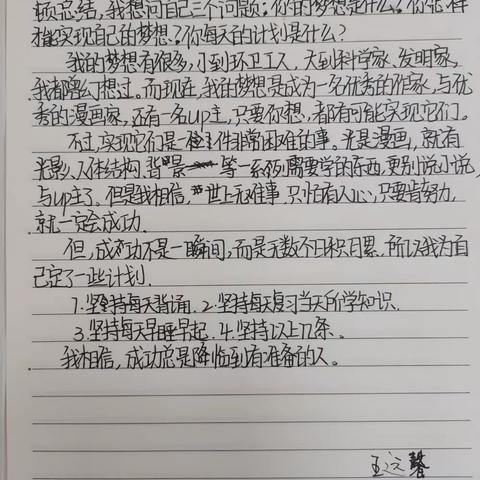 顿总结，我想问自己三个问题：你的梦想是什么？你怎样
才能实现自己的梦想？你每天的计划是什么？
我的梦想有很多，小到环卫工人，大到科学家、发明家，
我都幻想过。而现在，我的梦想是成为一名优秀的作家，与优
秀的漫画家，还有一名up主，只要你想，都有可能实现它们。
不过，实现它们是件非常困难的事。光是漫画，就有
光影、人体结构、背景等一系列需要学的东西，更别说小说，
与up主了。但是我相信，世上无难事，只怕有人心，只要肯努力，
就一定会成功。
但，成功不是一瞬间，而是无数个日积月累。所以我为自
己定了一些计划。
1.坚持每天背诵. 2.坚持每天复习当天所学知识.
3.坚持每天早睡早起. 4.坚持以上几条.
我相信，成功总是降临到有准备的人。
王远馨